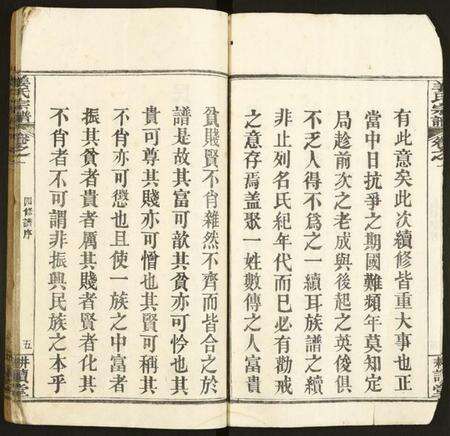 有此意矣此次續修皆重大事也正
當中日抗爭之期國難頻年莫知定
局趁前次之老成與後起之英俊俱
不乏人得不爲之一續耳族譜之續
非止列名氏紀年代而已必有勸戒
之意存焉蓋聚一姓數傳之人富貴
貧賤賢不肖雜然不齊而皆合之於
譜是故其富可歆其貧亦可怜也其
貴可尊其賤亦可憎也其賢可稱其
不肖亦可愆也且使一族之中富者
振其貧者貴者厲其賤者賢者化其
不肖者不可謂非振興民族之本乎
姜氏宗譜
卷之一
四修譜序
五
耕讀堂
姜氏宗譜
卷之一
耕讀堂